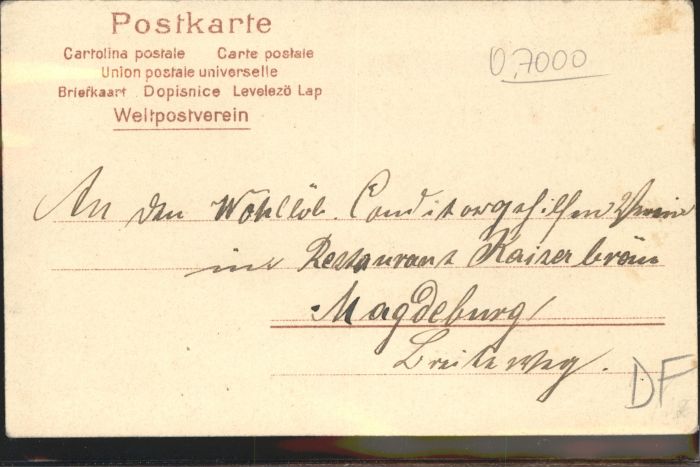 Postkarte
Cartolina postale Carte postale
Union postale universelle
Briefkaart Dopisnice Levelezö Lap
Weltpostverein
0,7000
An den Wohllöb. Conditorgehilfen Verein
im Restaurant Kaiserbräu
Magdeburg
Breiteweg.
DF